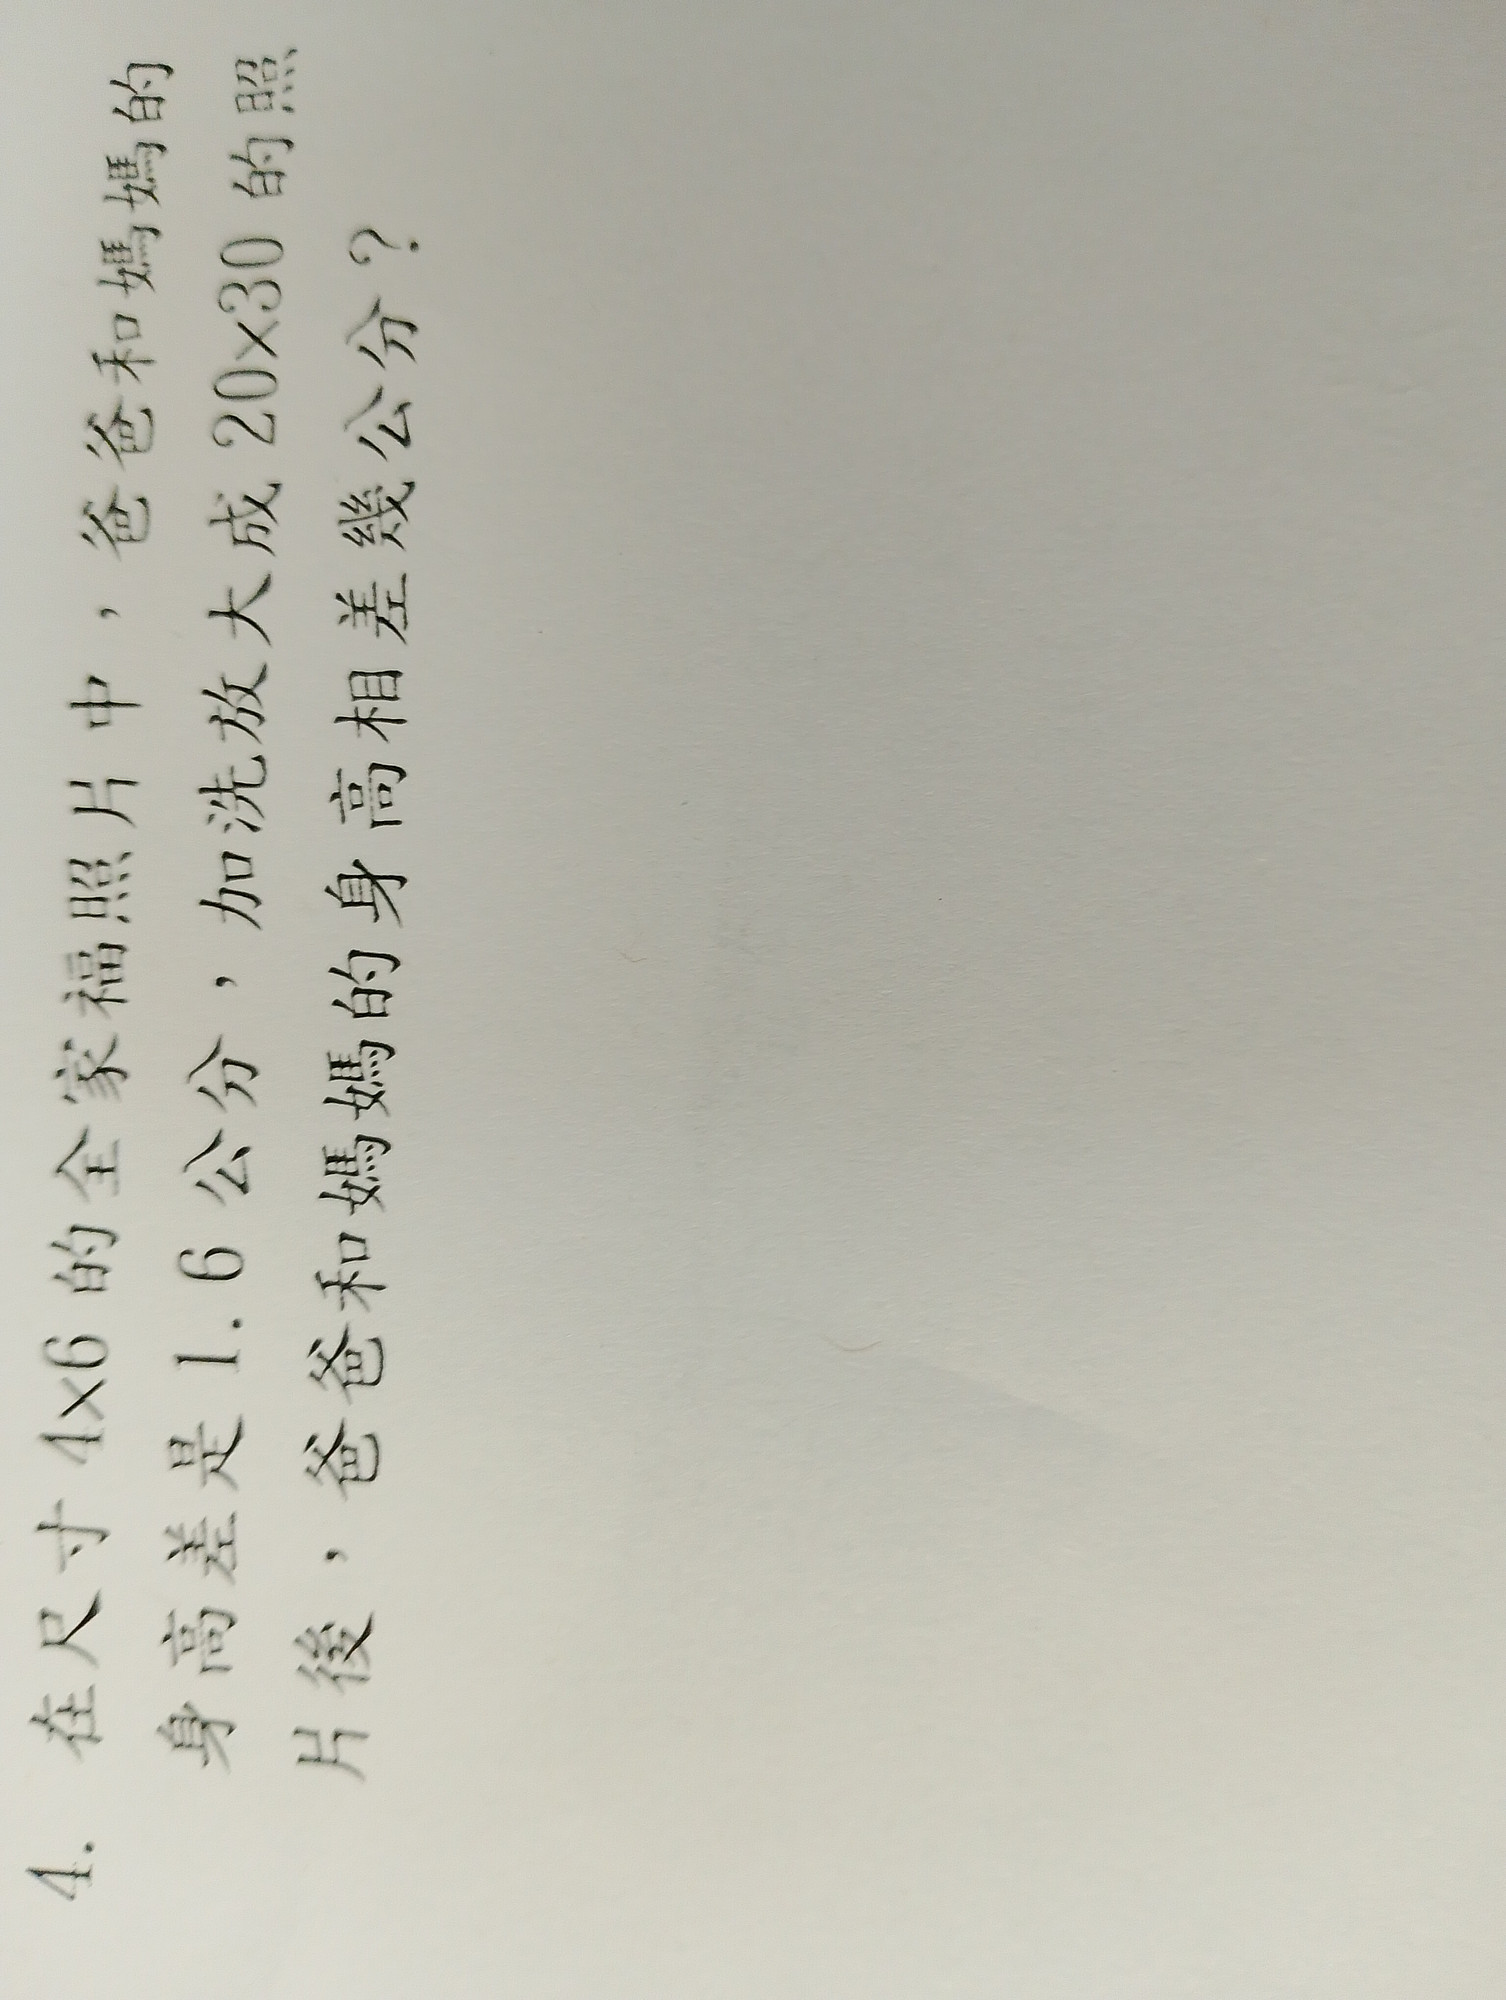 4. 在尺寸 4x6 的全家福照片中，爸爸和媽媽的
身高差是 1.6 公分，加洗放大成 20x30 的照
片後，爸爸和媽媽的身高相差幾公分？